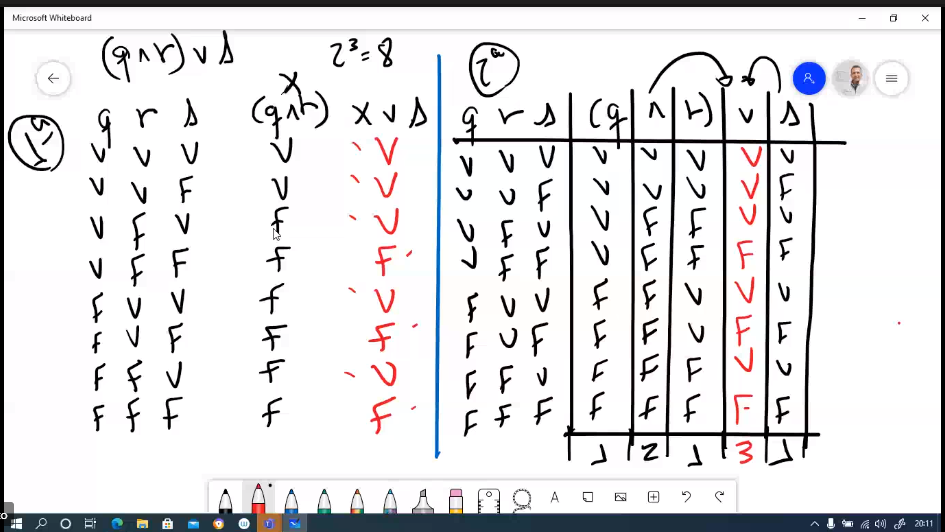 Microsoft Whiteboard
(q ∧ r) ∨ s
2³ = 8
1ª
x
q r s (q ∧ r) x ∨ s
V V V V V
V V F V V
V F V F V
V F F F F
F V V F V
F V F F F
F F V F V
F F F F F
2ª
q r s (q ∧ r) ∨ s
V V V V V V V V
V V F V V V V F
V F V V F F V V
V F F V F F F F
F V V F F V V V
F V F F F V F F
F F V F F F V V
F F F F F F F F
1 2 1 3 1
20:11